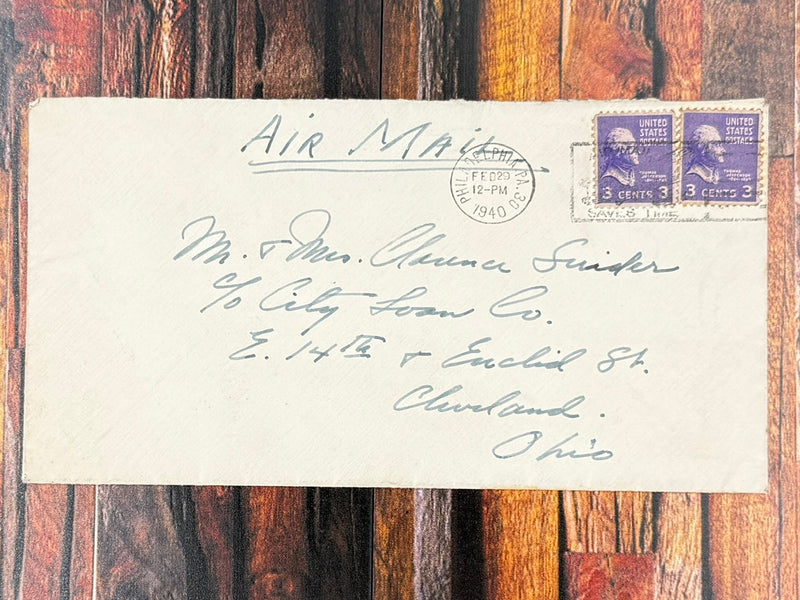 AIR MAIL
PHILADELPHIA, PA. 30
FEB 29
12-PM
1940
SAVES TIME
UNITED STATES POSTAGE
THOMAS JEFFERSON
3 CENTS 3
UNITED STATES POSTAGE
THOMAS JEFFERSON
3 CENTS 3
Mr. & Mrs. Clarence Snider
c/o City Loan Co.
E. 14th & Euclid St.
Cleveland.
Ohio